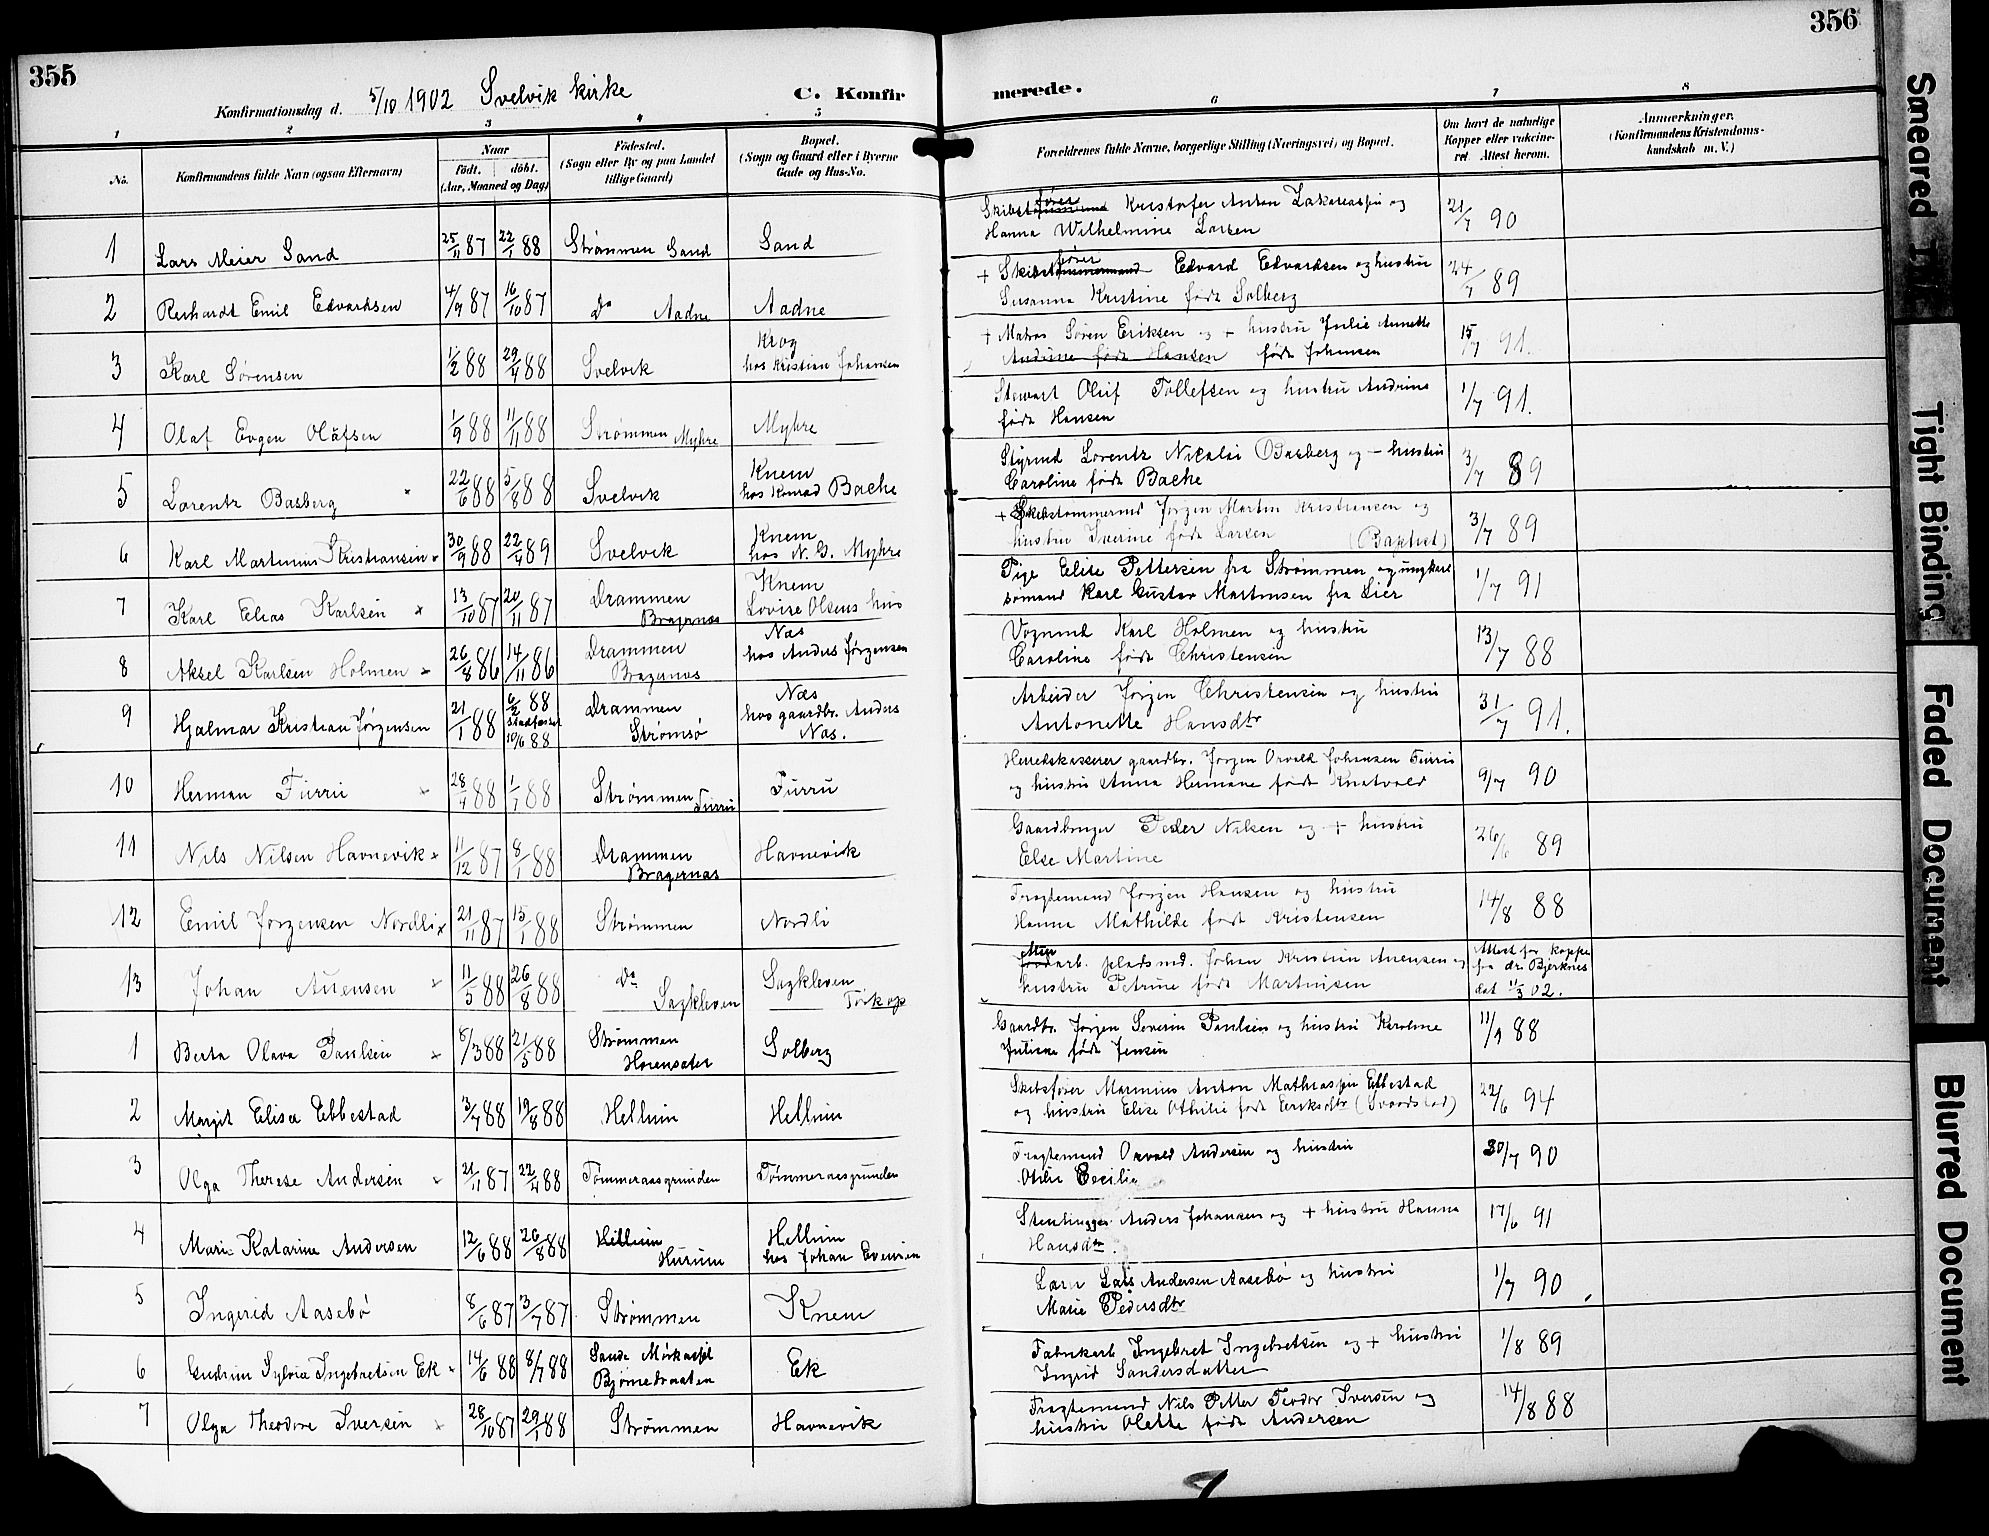 355
Konfirmationsdag d. 5/10 1902 Svelvik kirke
C. Konfir
1 2 3 4 5
No.
Konfirmandens fulde Navn (ogsaa Efternavn)
Naar
født. døbt.
(Aar, Maaned og Dag)
Fødested.
(Sogn eller By og paa Landet
tillige Gaard)
Bopæl.
(Sogn og Gaard eller i Byerne
Gade og Hus-No.
1 Lars Meier Sand 25/11 87 22/1 88 Strømmen Sand Sand
2 Reihardt Emil Edvardsen 4/9 87 16/10 87 do Aadne Aadne
3 Karl Sørensen 1/2 88 29/4 88 Svelvik Krog
hos Kristian Johansen
4 Olaf Evgen Olafsen 1/9 88 11/11 88 Strømmen Myhre Myhre
5 Lorentz Basberg 22/6 88 5/8 88 Svelvik Knem
hos Konrad Bache
6 Karl Martinius Kristiansen 30/9 88 22/4 89 Svelvik Knem
hos N. G. Myhre
7 Karl Elias Karlsen x 13/10 87 20/11 87 Drammen
Bragernæs
Knem
Lovise Olsens hus
8 Aksel Karlsen Holmen 26/8 86 14/11 86 Drammen
Bragernæs
Næs
hos Anders Jørgensen
9 Hjalmar Kristian Jørgensen 21/1 88 6/2 88
stadfæstet
10/6 88
Drammen
Strømsø
Næs
hos gaardbr. Anders
Næs.
10 Herman Furru 28/4 88 1/7 88 Strømmen Furru Furru
11 Nils Nilsen Havnevik 11/12 87 8/1 88 Drammen
Bragernæs
Havnevik
12 Emil Jørgensen Nordli x 21/11 87 15/1 88 Strømmen Nordli
13 Johan Auensen 11/5 88 26/8 88 do
Sagkleven
Sagkleven
Torkop
1 Berta Olava Paulsen 8/3 88 21/5 88 Strømmen
Horensæter
Solberg
2 Margit Elisa Ebbestad 3/7 88 19/8 88 Hellum Hellum
3 Olga Therese Andersen 21/11 87 22/4 88 Tømmeraasgrunden Tømmeraasgrunden
4 Marie Katarine Andersen 12/6 88 26/8 88 Hellum
Hurum
Hellum
hos Johan Evensen
5 Ingerid Aasebø 8/6 87 3/7 87 Strømmen Knem
6 Gudrun Sylvia Ingebretsen Ek 14/6 88 8/7 88 Sande
Ek
7 Olga Theodore Iversen 28/10 87 29/1 88 Strømmen Havnevik
356
merede.
6 7 8
Forældrenes fulde Navne, borgerlige Stilling (Næringsvei) og Bopæl.
Om havt de naturlige
Kopper eller vakcine-
ret Attest herom.
Anmerkninger.
(Konfirmandens Kristendoms-
kundskab m. V.)
Skibsfører Kristofer Anton Zakariassen og
Hanna Wilhelmine Larsen
21/7 90
+ Skibsfører Edvard Edvardsen og hustru
Susanna Kristine født Solberg
24/7 89
+ Matros Søren Eriksen og + hustru Julie Annette
Andrine født Hansen født Johansen
15/7 91.
Stewart Oluf Tollefsen og hustru Andrine
født Hansen
1/7 91.
Styrmd Lorentz Nikolai Basberg og hustru
Caroline født Bache
3/7 89
+ Skibstømmermd Jørgen Martin Kristiansen og
hustru Iverine født Larsen (Baptist)
3/7 89
Pige Elise Pettersen fra Strømmen og ungkarl
sømand Karl Gustav Martinsen fra Lier
1/7 91
Vognmd Karl Holmen og hustru
Caroline født Christensen
13/7 88
Arbeider Jørgen Christensen og hustru
Antonette Hansdtr
31/7 91.
Herredskasserer gaardbr. Jørgen Osvald Johansen Furru
og hustru Anna Hermane født Knatvold
9/7 90
Gaardbruger Peder Nilsen og + hustru
Else Martine
26/6 89
Fragtemand Jørgen Hansen og hustru
Hanna Mathilde født Kristensen
14/8 88
arb. pladsmd. Johan Kristian Auensen og
hustru Petrine født Martinsen
Attest for kopper
fra dr. Bjerknes
dat 11/3 02.
Gaardbr. Jørgen Severin Paulsen og hustru Karoline
Juliane født Jensen
11/9 88
Skibsfører Marinius Anton Mathiassen Ebbestad
og hustru Elise Othilie født Eriksdtr (Svaarstad)
22/6 94
Fragtemand Osvald Andersen og hustru
Otilie Cecilie
30/7 90
Stenhugger Anders Johansen og + hustru Hanna
Hansdtr.
17/6 91
Lars Andersen Aasebø og hustru
Marie Pedersdtr
1/7 90
Fabrikarb Ingebret Ingebretsen og + hustru
Ingrid Sandersdatter
1/8 89
Fragtemand Nils Petter Teodor Iversen og
hustru Olette født Andersen
14/8 88
Smeared
Tight Binding
Faded Document
Blurred Document